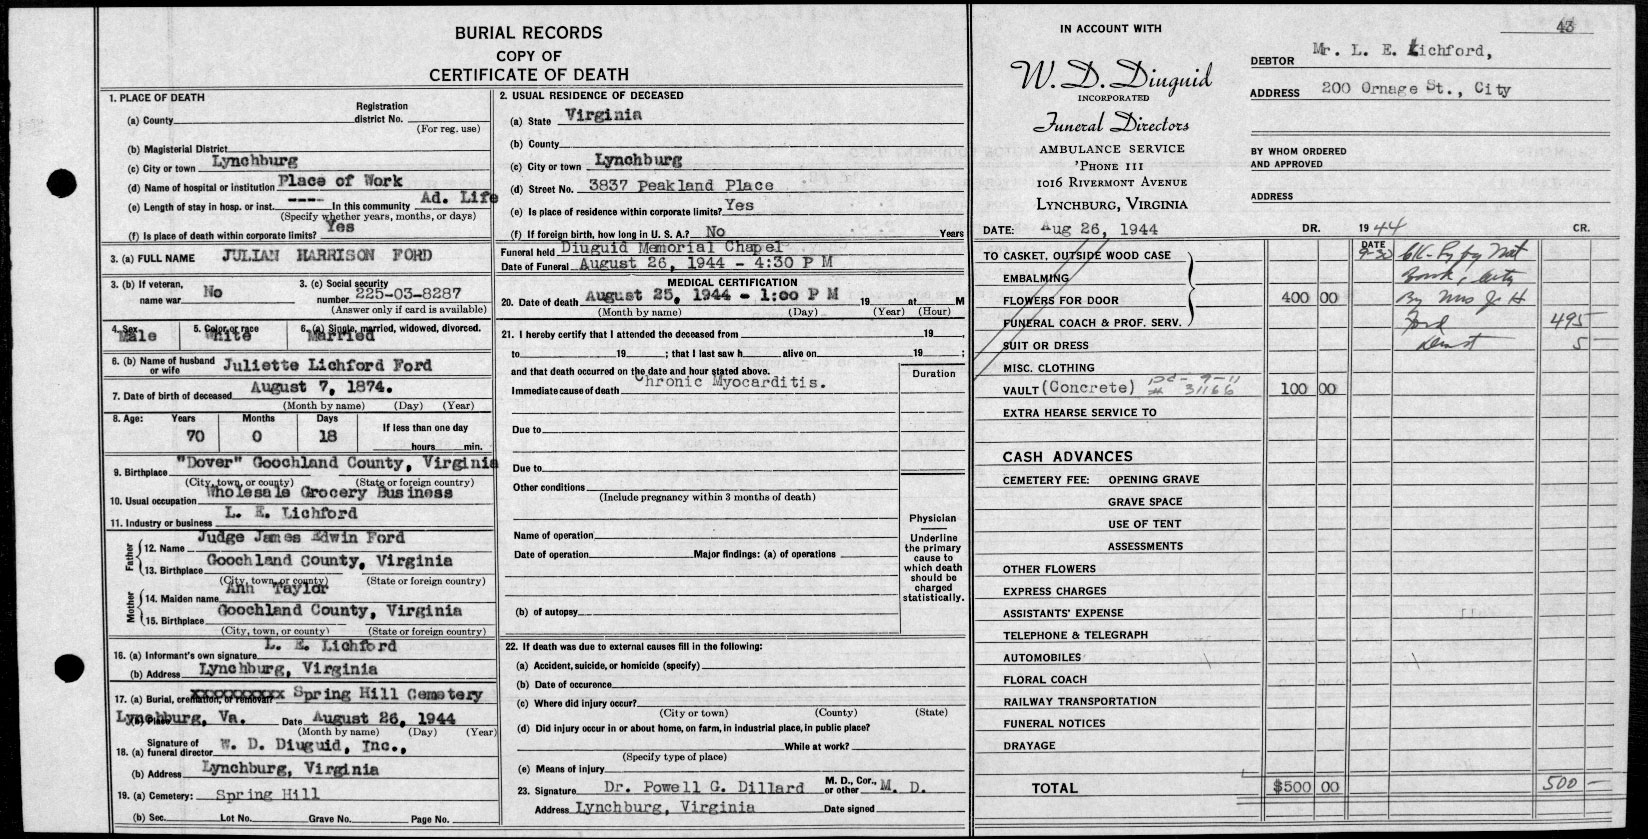 BURIAL RECORDS
COPY OF
CERTIFICATE OF DEATH
1. PLACE OF DEATH
(a) County
Registration district No.
(For reg. use)
(b) Magisterial District
(c) City or town Lynchburg
(d) Name of hospital or institution Place of Work
(e) Length of stay in hosp. or inst. ---- In this community Ad. Life
(Specify whether years, months, or days)
(f) Is place of death within corporate limits? Yes
3. (a) FULL NAME JULIAN HARRISON FORD
3. (b) If veteran, name war No
3. (c) Social security number 225-03-8287
(Answer only if card is available)
4. Sex Male
5. Color or race White
6. (a) Single, married, widowed, divorced. Married
6. (b) Name of husband or wife Juliette Lichford Ford
7. Date of birth of deceased August 7, 1874.
(Month by name) (Day) (Year)
8. Age: Years Months Days If less than one day
70 0 18 hours min.
9. Birthplace "Dover" Goochland County, Virginia
(City, town, or county) (State or foreign country)
10. Usual occupation Wholesale Grocery Business
11. Industry or business L. E. Lichford
Father
12. Name Judge James Edwin Ford
13. Birthplace Goochland County, Virginia
(City, town, or county) (State or foreign country)
Mother
14. Maiden name Ann Taylor
15. Birthplace Goochland County, Virginia
(City, town, or county) (State or foreign country)
16. (a) Informant's own signature L. E. Lichford
(b) Address Lynchburg, Virginia
17. (a) Burial, cremation, or removal? xxxxxxxxxx Spring Hill Cemetery
(b) Place Lynchburg, Va. Date August 26, 1944
(Month by name) (Day) (Year)
18. (a) Signature of funeral director W. D. Diuguid, Inc.,
(b) Address Lynchburg, Virginia
19. (a) Cemetery: Spring Hill
(b) Sec. Lot No. Grave No. Page No.
2. USUAL RESIDENCE OF DECEASED
(a) State Virginia
(b) County
(c) City or town Lynchburg
(d) Street No. 3837 Peakland Place
(e) Is place of residence within corporate limits? Yes
(f) If foreign birth, how long in U. S. A.? No Years
Funeral held Diuguid Memorial Chapel
Date of Funeral August 26, 1944 - 4:30 P M
MEDICAL CERTIFICATION
20. Date of death August 25, 1944 - 1:00 P M 19 at M
(Month by name) (Day) (Year) (Hour)
21. I hereby certify that I attended the deceased from 19
to 19 ; that I last saw h alive on 19 ;
and that death occurred on the date and hour stated above.
Immediate cause of death Chronic Myocarditis.
Duration
Due to
Due to
Other conditions
(Include pregnancy within 3 months of death)
Name of operation
Date of operation Major findings: (a) of operations
(b) of autopsy
Physician
Underline the primary cause to which death should be charged statistically.
22. If death was due to external causes fill in the following:
(a) Accident, suicide, or homicide (specify)
(b) Date of occurence
(c) Where did injury occur?
(City or town) (County) (State)
(d) Did injury occur in or about home, on farm, in industrial place, in public place?
While at work?
(Specify type of place)
(e) Means of injury
23. Signature Dr. Powell G. Dillard M. D., Cor., or other M. D.
Address Lynchburg, Virginia Date signed
43
IN ACCOUNT WITH
W. D. Diuguid
INCORPORATED
Funeral Directors
AMBULANCE SERVICE
'PHONE 111
1016 RIVERMONT AVENUE
LYNCHBURG, VIRGINIA
DEBTOR Mr. L. E. Lichford,
ADDRESS 200 Ornage St., City
BY WHOM ORDERED AND APPROVED
ADDRESS
DATE: Aug 26, 1944 DR. 1944 CR.
TO CASKET, OUTSIDE WOOD CASE
EMBALMING
FLOWERS FOR DOOR 400 00
FUNERAL COACH & PROF. SERV.
SUIT OR DRESS
MISC. CLOTHING
VAULT (Concrete) # 31166 100 00
EXTRA HEARSE SERVICE TO
DATE
9-30 CK- Py by Nat
Bank, City
By Mrs J. H
Ford 495 -
Disct 5 -
CASH ADVANCES
CEMETERY FEE: OPENING GRAVE
GRAVE SPACE
USE OF TENT
ASSESSMENTS
OTHER FLOWERS
EXPRESS CHARGES
ASSISTANTS' EXPENSE
TELEPHONE & TELEGRAPH
AUTOMOBILES
FLORAL COACH
RAILWAY TRANSPORTATION
FUNERAL NOTICES
DRAYAGE
TOTAL $500 00 500 -